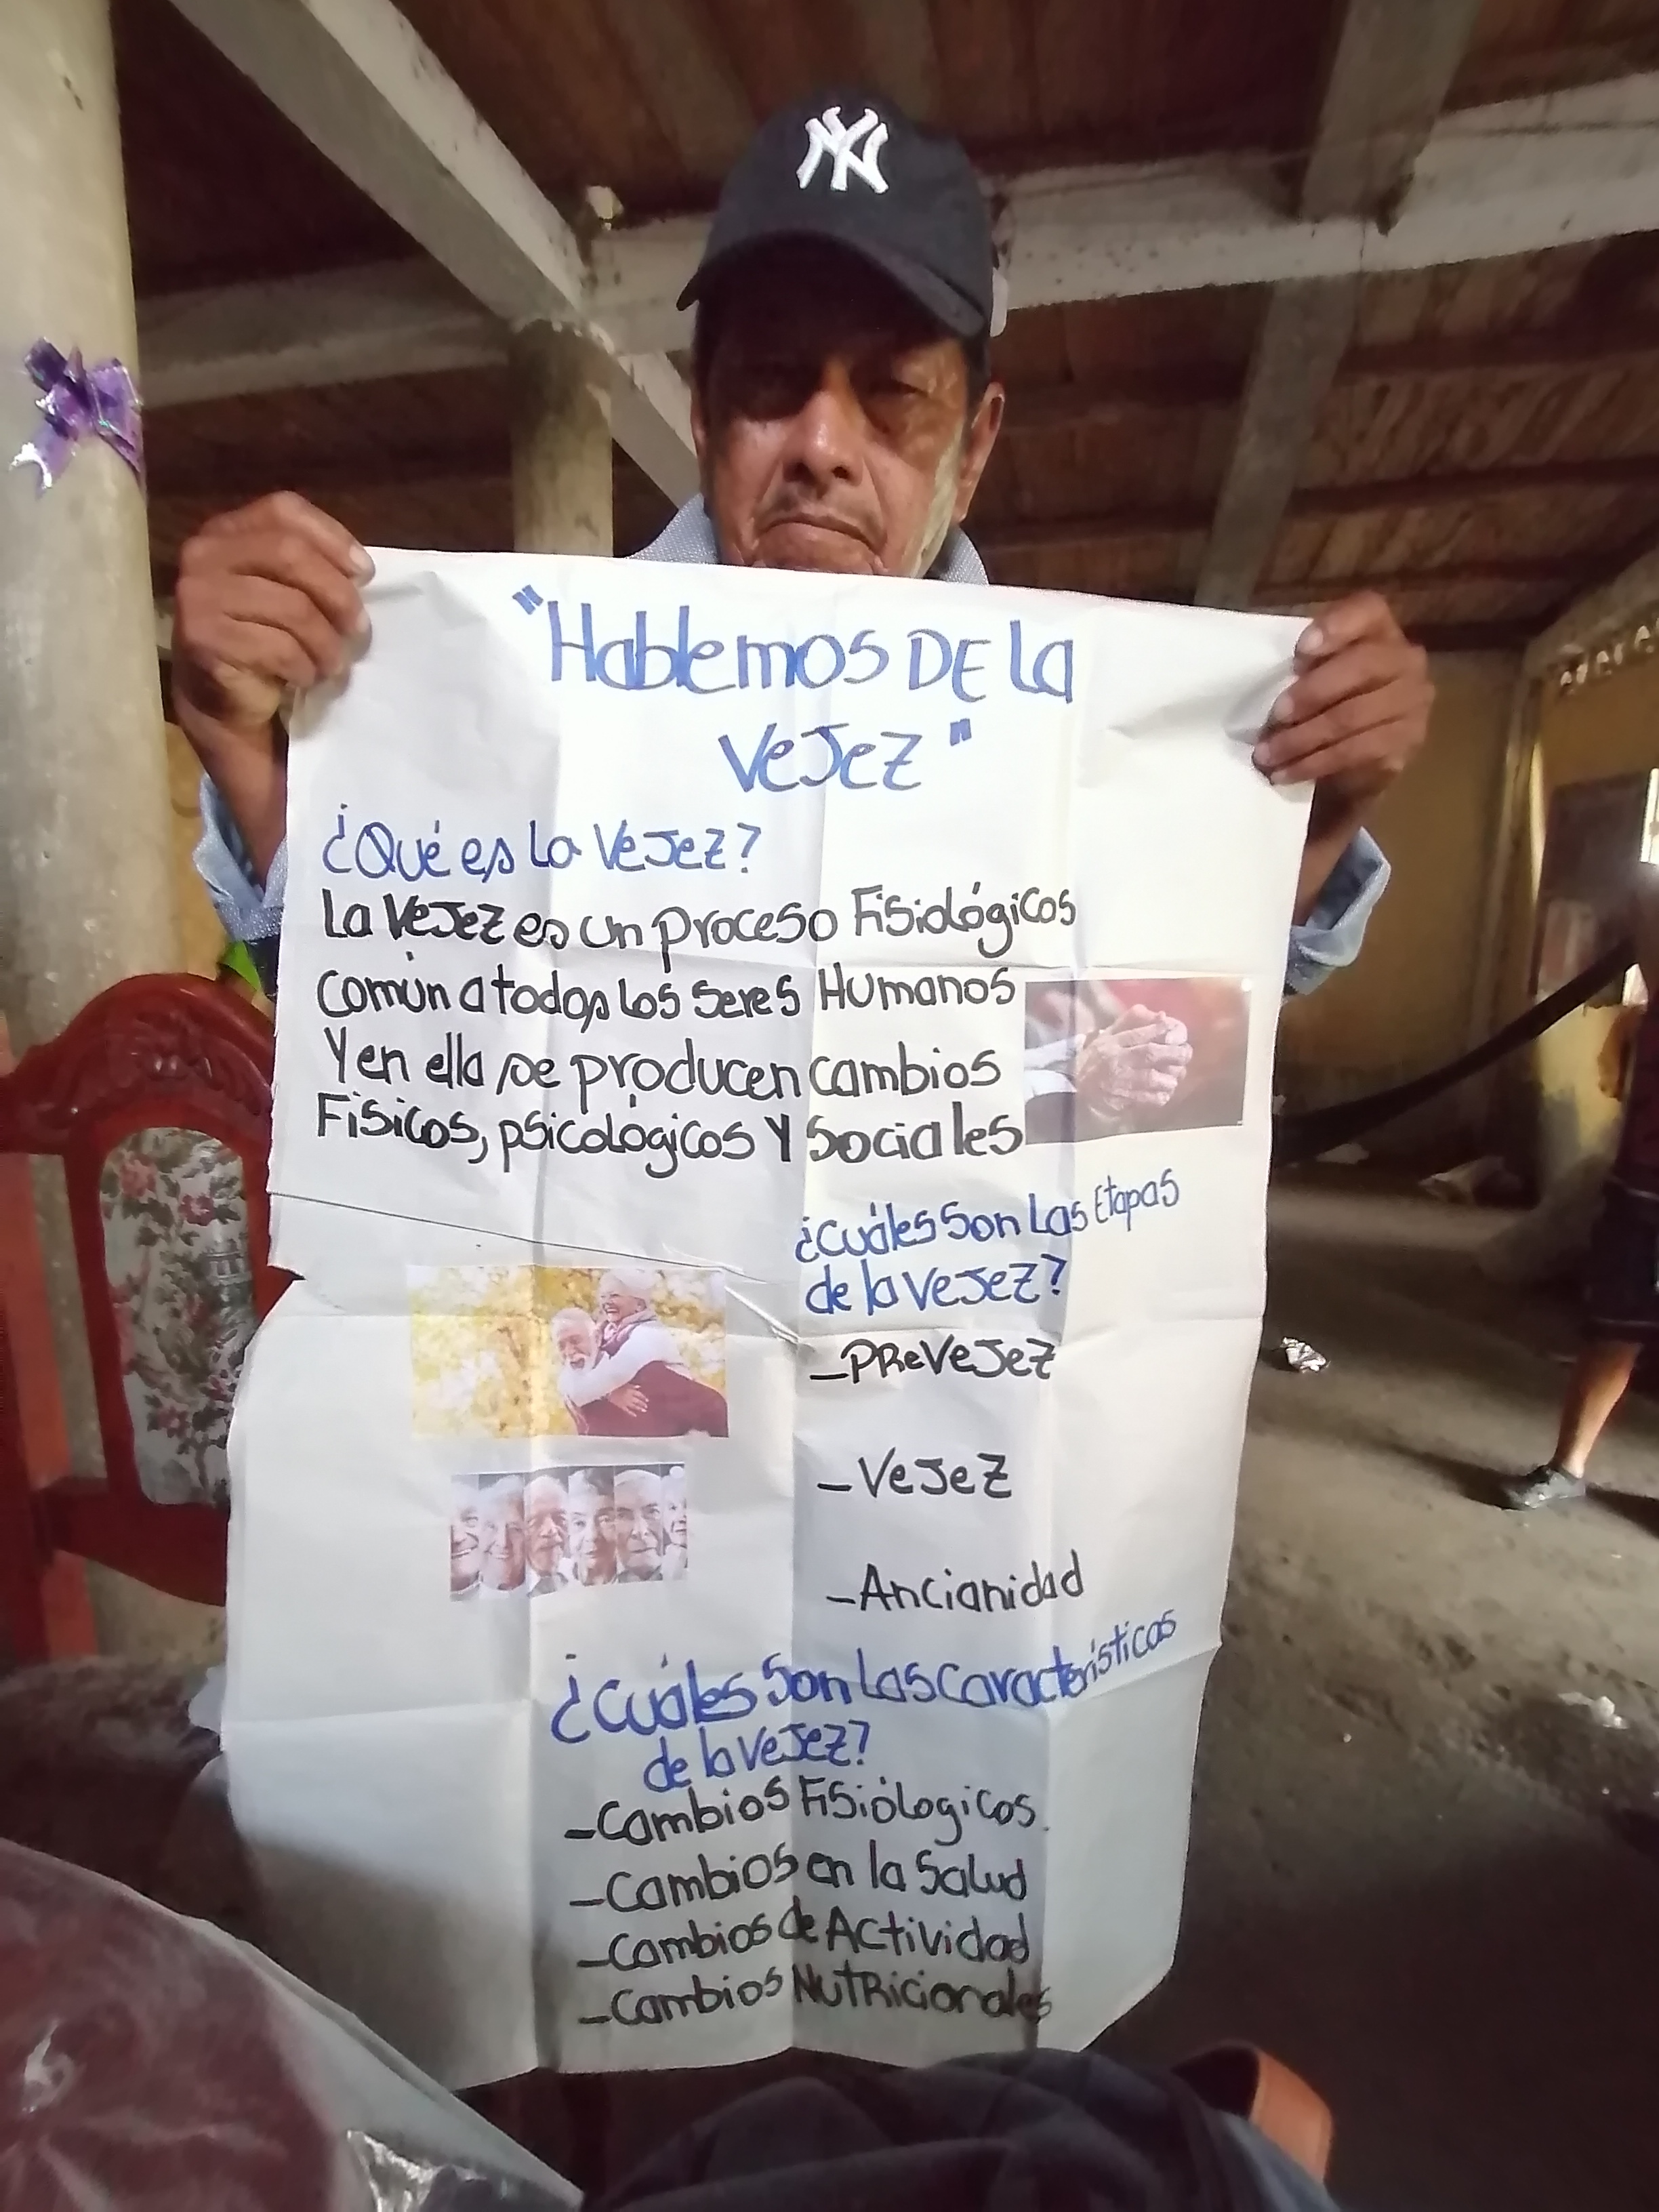 NY
"Hablemos DE la
VeJeZ"
¿Qué es La VeJeZ?
La VeJeZ es un proceso Fisiológicos
común a todos los seres Humanos
Y en ella se producen cambios
Fisicos, psicológicos Y Sociales
¿Cuáles Son Las Etapas
de la VeJeZ?
-PReVeJeZ
-VeJeZ
-Ancianidad
¿Cuáles Son Las características
de la VeJeZ?
-Cambios Fisiólogicos.
-Cambios en la Salud
-Cambios de Actividad
-Cambios NutRicionales